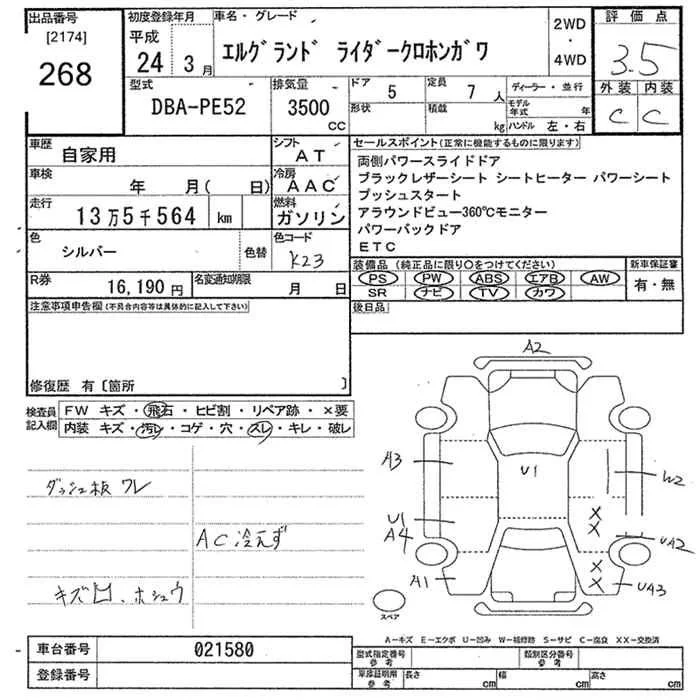 出品番号
[2174]
268
初度登録年月
平成
24年 3月
車名・グレード
エルグランド ライダークロホンガワ
2WD
・
4WD
評価点
3.5
外装 内装
C C
型式
DBA-PE52
排気量
3500
CC
ドア 5
定員 7人
形状
積載 kg
ディーラー・並行
モデル年式 年
ハンドル 左・右
車歴
自家用
シフト
AT
車検
年 月( 日)
冷房
AAC
走行
13万5千564 km
燃料
ガソリン
色
シルバー
色替
色コード
K23
R券
16,190円
名変通知期限
月 日
セールスポイント(正常に機能するものに限ります)
両側パワースライドドア
ブラックレザーシート シートヒーター パワーシート
プッシュスタート
アラウンドビュー360℃モニター
パワーバックドア
ETC
装備品(純正品に限り○をつけてください)
PS PW ABS エアB AW
SR ナビ TV カワ
新車保証書
有・無
後日品
注意事項申告欄(不具合内容等は具体的に記入して下さい)
修復歴 有〔箇所 〕
検査員記入欄
FW キズ・飛石・ヒビ割・リペア跡・×要
内装 キズ・汚レ・コゲ・穴・スレ・キレ・破レ
ダッシュ板 ワレ
AC冷えず
キズ凹、ホシュウ
A2
A3
U1
W2
U1
A4
UA2
A1
UA3
スペア
A-キズ E-エクボ U-凹み W-補修跡 S-サビ C-腐食 XX-交換済
車台番号
021580
登録番号
型式指定番号
参考
類別区分番号
参考
車庫証明用
参考
長さ cm
幅 cm
高さ cm